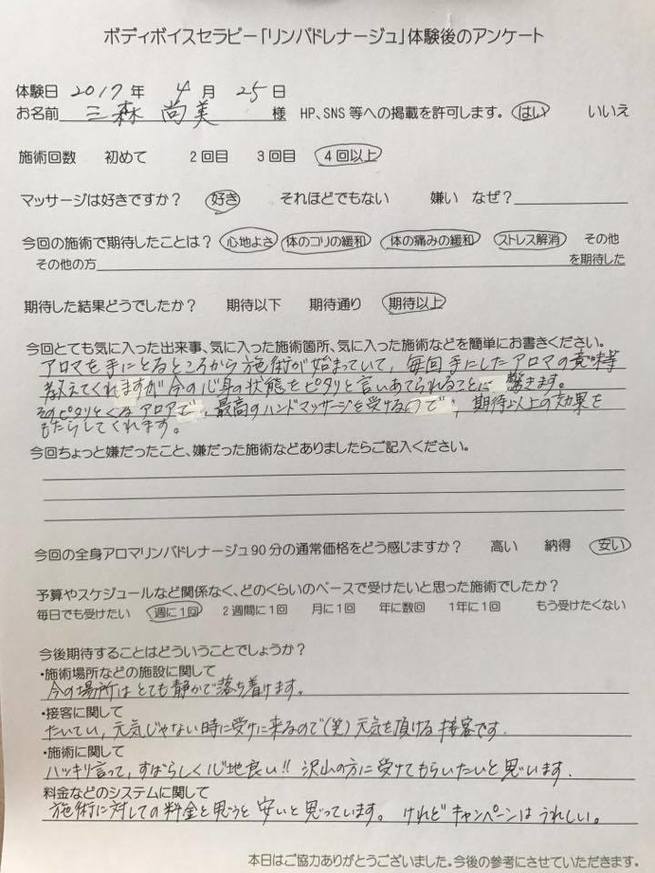 ボディボイスセラピー「リンパドレナージュ」体験後のアンケート
体験日 2017 年 4 月 25 日
お名前 三森 尚美 様 HP、SNS 等への掲載を許可します。 はい いいえ
施術回数 初めて 2回目 3回目 4回以上
マッサージは好きですか? 好き それほどでもない 嫌い なぜ?
今回の施術で期待したことは? 心地よさ 体のコリの緩和 体の痛みの緩和 ストレス解消 その他
その他の方 を期待した
期待した結果どうでしたか? 期待以下 期待通り 期待以上
今回とても気に入った出来事、気に入った施術箇所、気に入った施術などを簡単にお書きください。
アロマを手にとるところから施術が始まっていて、毎回手にしたアロマの意味等
教えてくれますが今の心身の状態をピタリと言いあてられることに驚きます。
そのピタリとくるアロアで、最高のハンドマッサージを受けるので、期待以上の効果を
もたらしてくれます。
今回ちょっと嫌だったこと、嫌だった施術などありましたらご記入ください。
今回の全身アロマリンパドレナージュ90分の通常価格をどう感じますか? 高い 納得 安い
予算やスケジュールなど関係なく、どのくらいのペースで受けたいと思った施術でしたか?
毎日でも受けたい 週に1回 2週間に1回 月に1回 年に数回 1年に1回 もう受けたくない
今後期待することはどういうことでしょうか?
・施術場所などの施設に関して
今の場所はとても静かで落ち着けます。
・接客に関して
たいてい、元気じゃない時に受けに来るので(笑)元気を頂ける接客です.
・施術に関して
ハッキリ言って、すばらしく心地良い!! 沢山の方に受けてもらいたいと思います.
料金などのシステムに関して
施術に対しての料金と思うと安いと思っています。 けれどキャンペーンはうれしい。
本日はご協力ありがとうございました。今後の参考にさせていただきます。